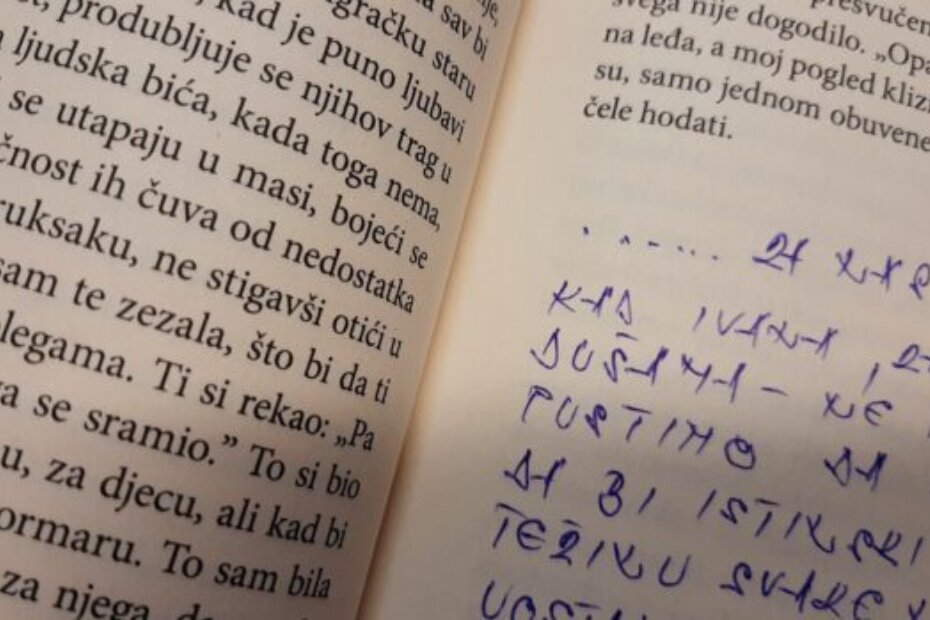 sav bi
kad je puno ljubavi
igračku staru
produbljuje se njihov trag u
ljudska bića, kada toga nema,
se utapaju u masi, bojeći se
čnost ih čuva od nedostatka
ruksaku, ne stigavši otići u
sam te zezala, što bi da ti
legama. Ti si rekao: „Pa
va se sramio.” To si bio
u, za djecu, ali kad bi
ormaru. To sam bila
za njega, da
presvučen
svega nije dogodilo. „Opa
na leđa, a moj pogled kliz
su, samo jednom obuvene
čele hodati.
...... ZA NAS
KAD IVANA,
DUŠAMA - NE
PUSTIMO DA
DA BI ISTINSKI
TEŽINU SVAKE